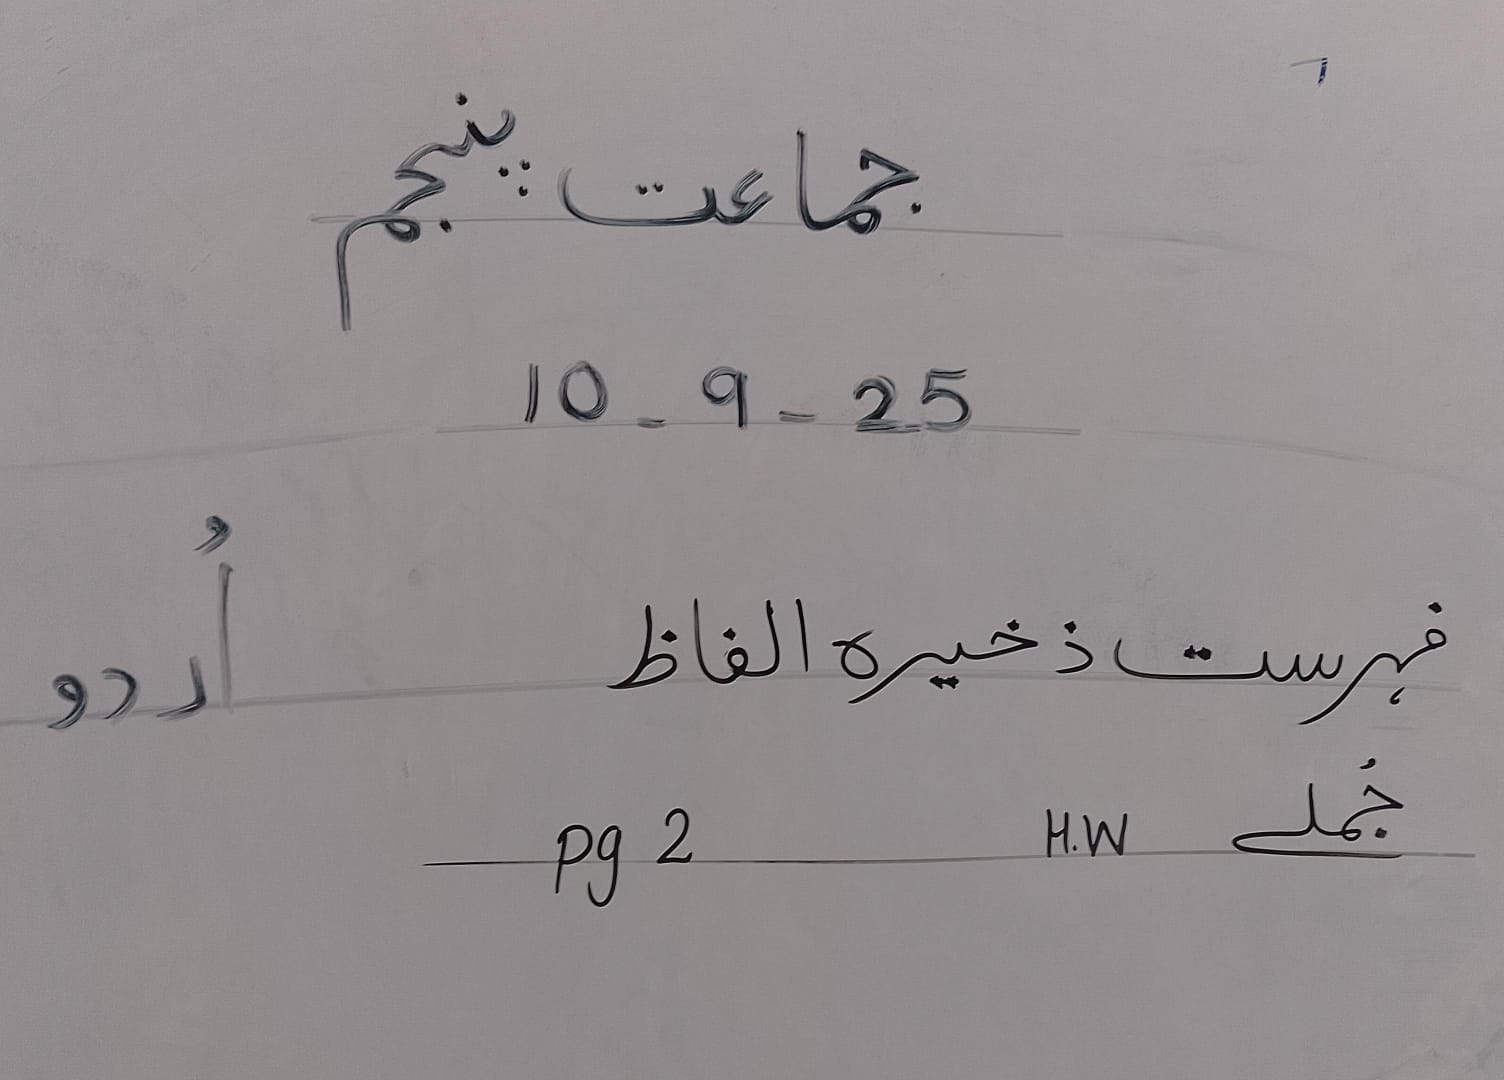 جماعت پنجم
10 - 9 - 25
فہرست ذخیرہ الفاظ اُردو
جُملے H.W pg 2